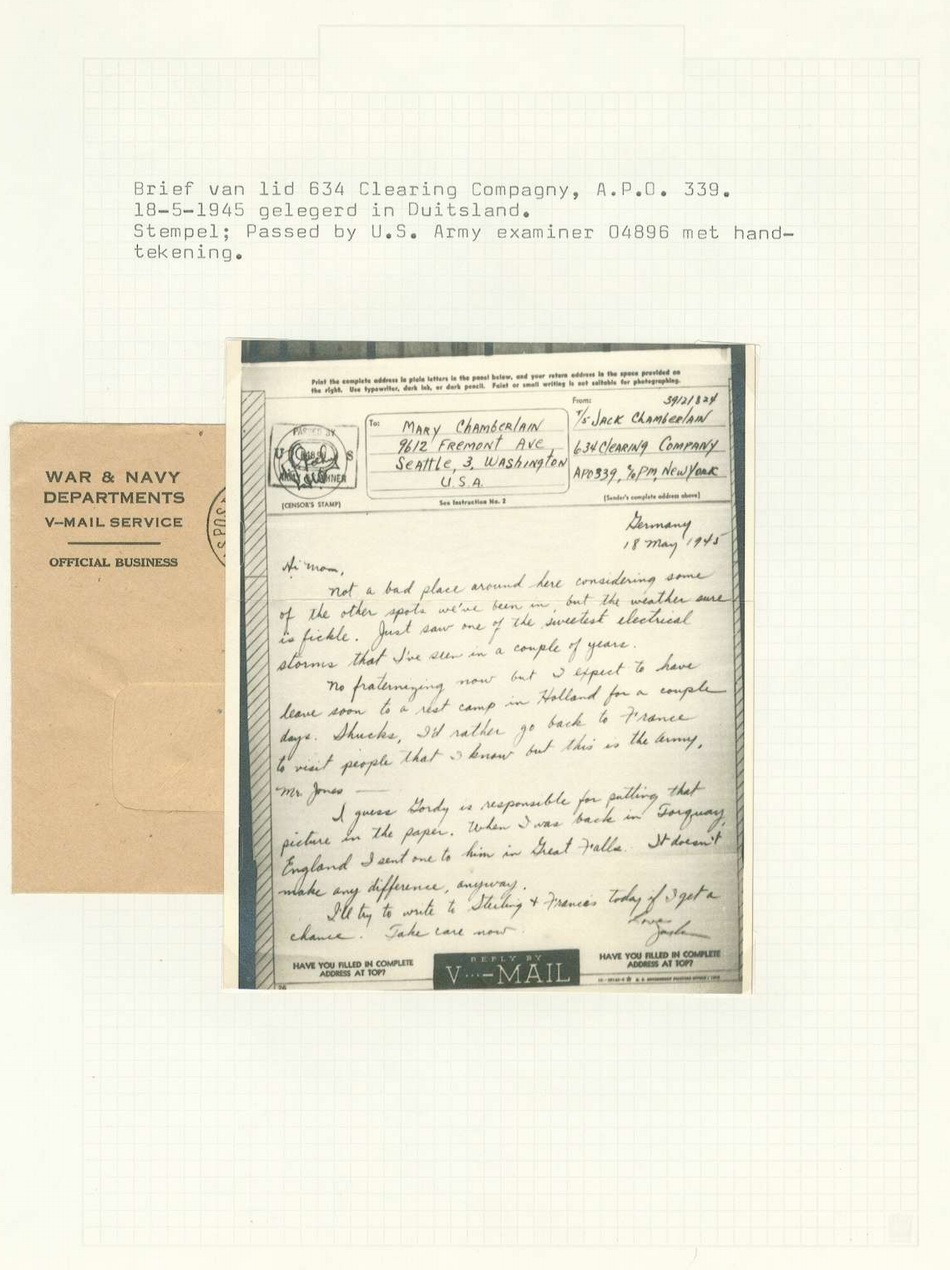 Brief van lid 634 Clearing Compagny, A.P.O. 339.
18-5-1945 gelegerd in Duitsland.
Stempel; Passed by U.S. Army examiner 04896 met hand-
tekening.
WAR & NAVY
DEPARTMENTS
V-MAIL SERVICE
OFFICIAL BUSINESS
Print the complete address in plain letters in the panel below, and your return address in the space provided on
the right. Use typewriter, dark ink, or dark pencil. Faint or small writing is not suitable for photographing.
PASSED BY
U S
ARMY EXAMINER
[CENSOR'S STAMP]
To:
MARY CHAMBERLAIN
9612 FREMONT AVE
SEATTLE, 3, WASHINGTON
U.S.A.
See Instruction No. 2
From:
39121824
T/5 JACK CHAMBERLAIN
634 CLEARING COMPANY
APO 339, % PM, NEW YORK
[Sender's complete address above]
Germany
18 May 1945
Hi Mom,
Not a bad place around here considering some
of the other spots we've been in, but the weather sure
is fickle. Just saw one of the sweetest electrical
storms that I've seen in a couple of years.
No fraternizing now but I expect to have
leave soon to a rest camp in Holland for a couple
days. Shucks, I'd rather go back to France
to visit people that I know but this is the Army,
Mr. Jones —
I guess Gordy is responsible for putting that
picture in the paper. When I was back in Torquay,
England I sent one to him in Great Falls. It doesn't
make any difference, anyway.
I'll try to write to Sterling & Frances today if I get a
chance. Take care now.
Love
HAVE YOU FILLED IN COMPLETE
ADDRESS AT TOP?
REPLY BY
V···-MAIL
HAVE YOU FILLED IN COMPLETE
ADDRESS AT TOP?